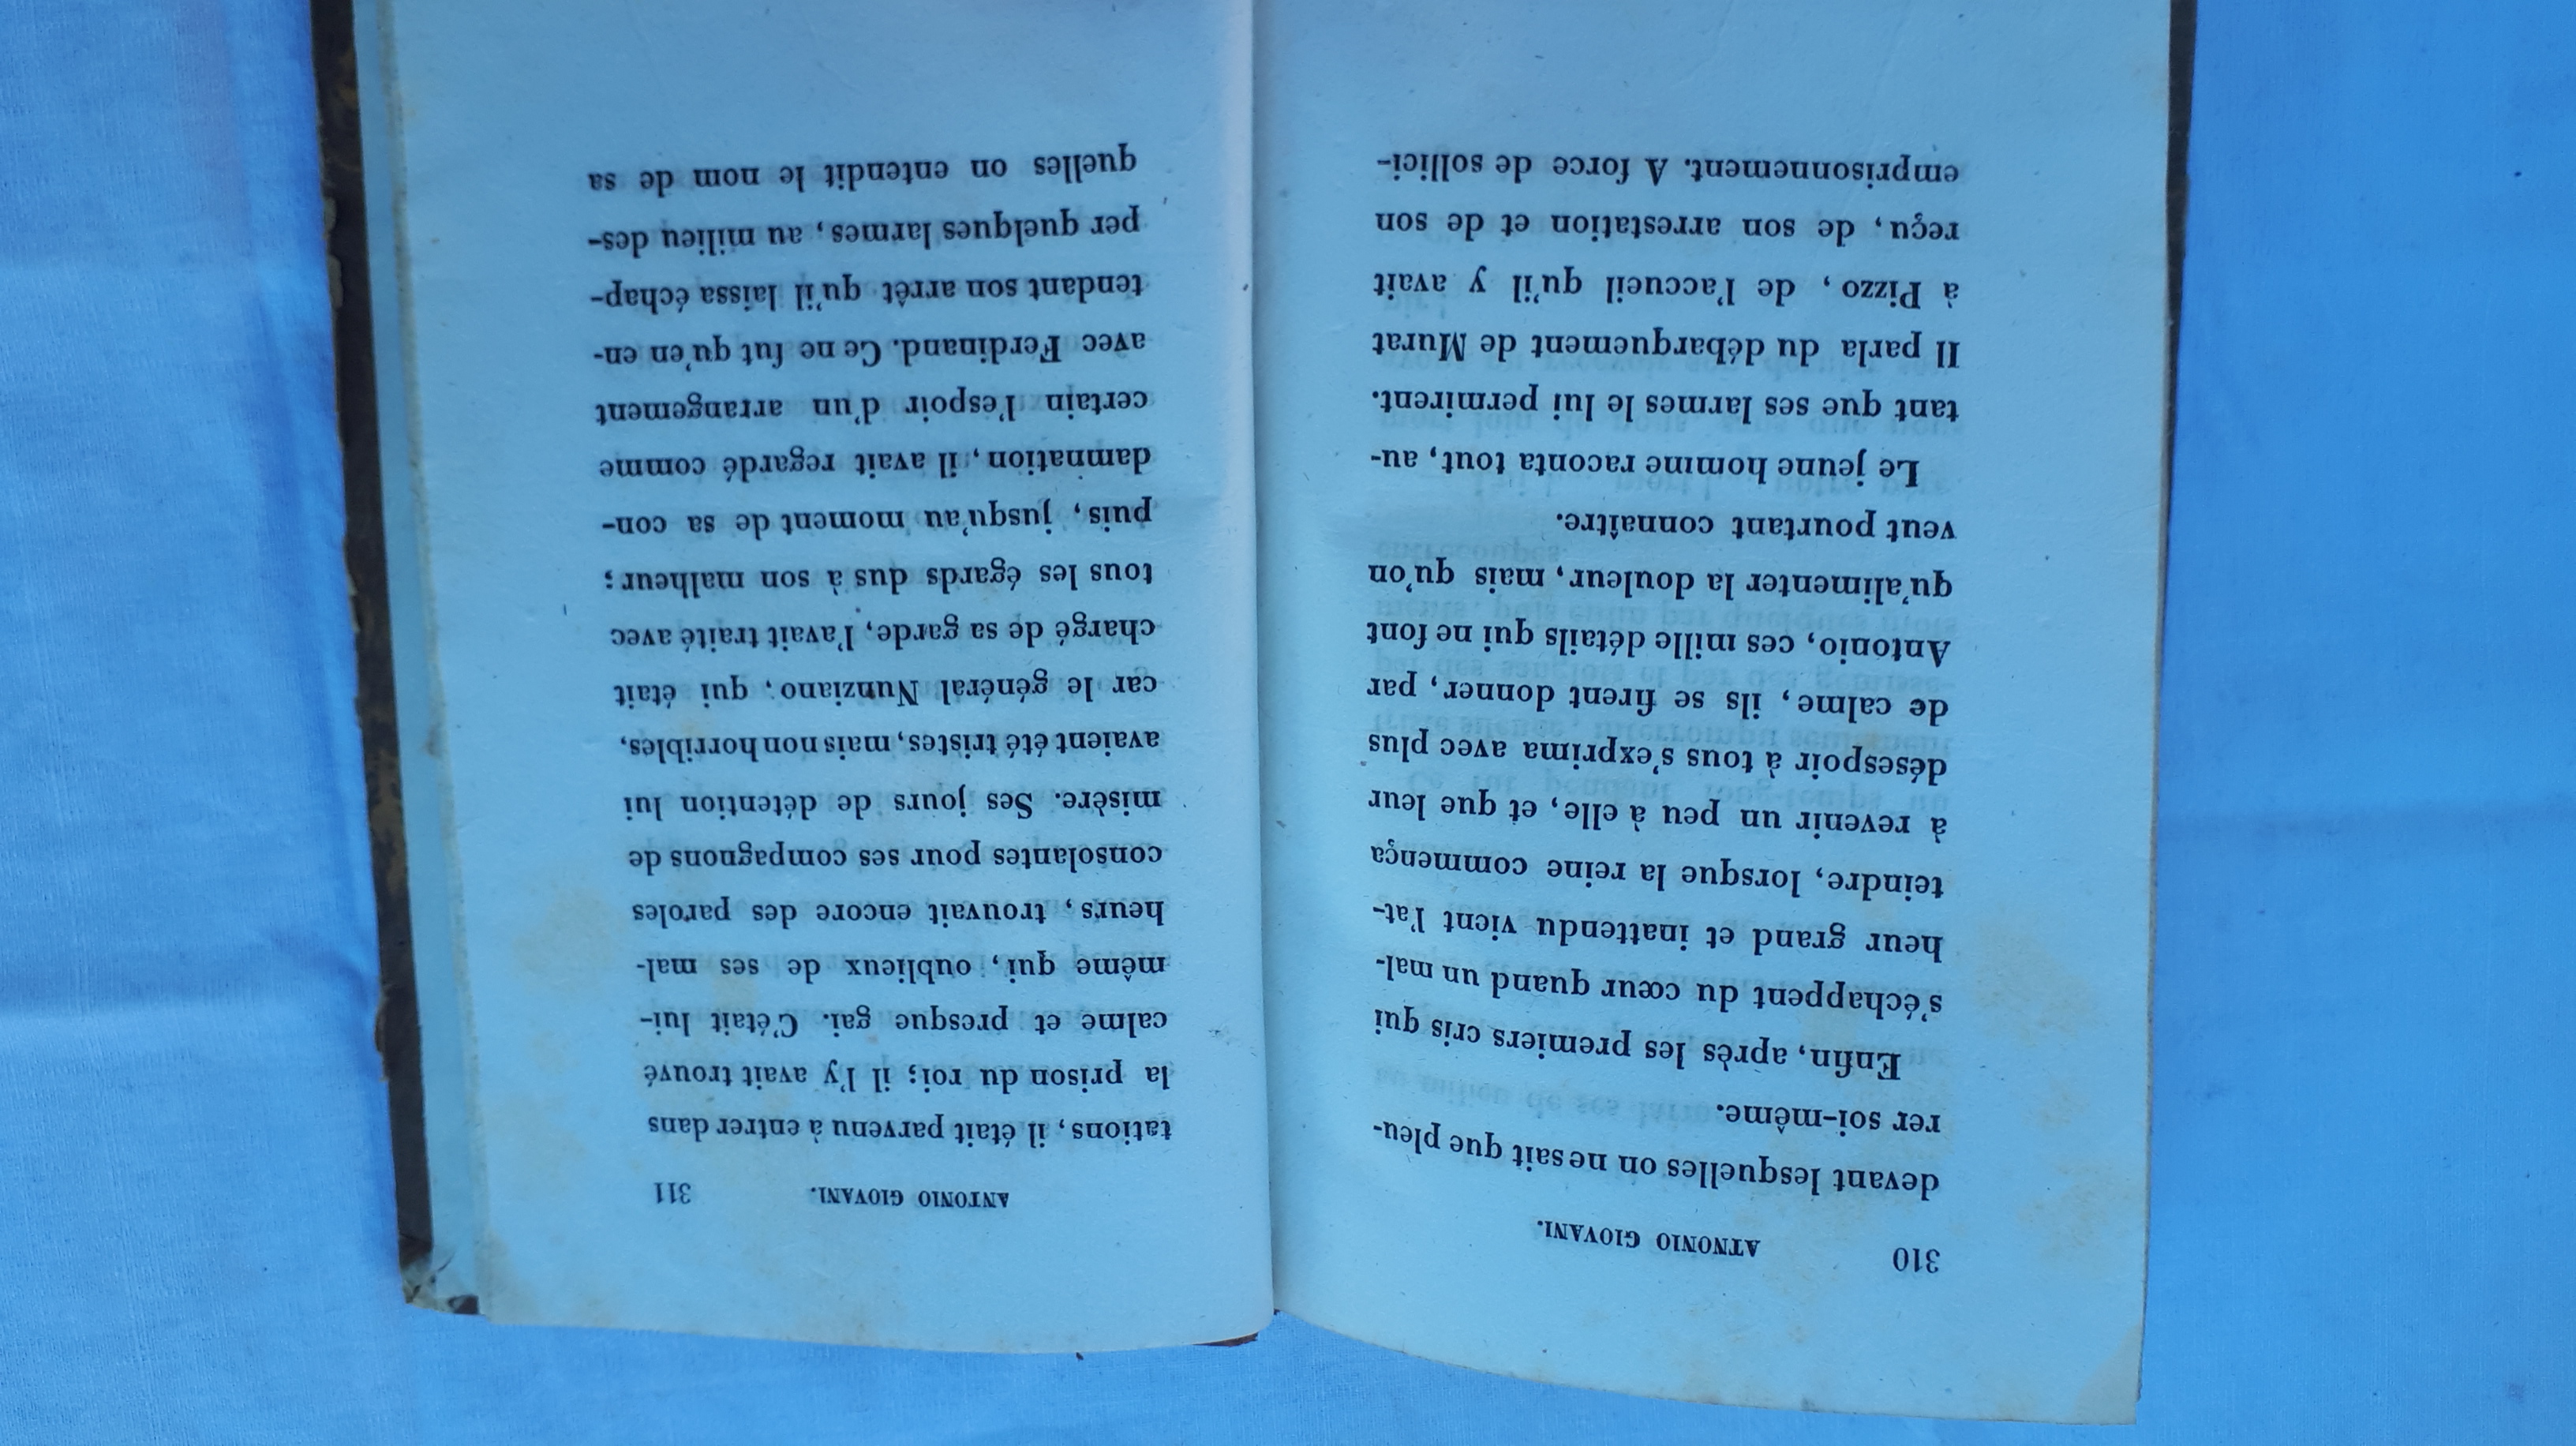 310 ATNONIO GIOVANI.
devant lesquelles on ne sait que pleu-
rer soi-même.
Enfin, après les premiers cris qui
s'échappent du cœur quand un mal-
heur grand et inattendu vient l'at-
teindre, lorsque la reine commença
à revenir un peu à elle, et que leur
désespoir à tous s'exprima avec plus
de calme, ils se firent donner, par
Antonio, ces mille détails qui ne font
qu'alimenter la douleur, mais qu'on
veut pourtant connaître.
Le jeune homme raconta tout, au-
tant que ses larmes le lui permirent.
Il parla du débarquement de Murat
à Pizzo, de l'accueil qu'il y avait
reçu, de son arrestation et de son
emprisonnement. A force de sollici-
ANTONIO GIOVANI. 311
tations, il était parvenu à entrer dans
la prison du roi; il l'y avait trouvé
calme et presque gai. C'était lui-
même qui, oublieux de ses mal-
heurs, trouvait encore des paroles
consolantes pour ses compagnons de
misère. Ses jours de détention lui
avaient été tristes, mais non horribles,
car le général Nunziano, qui était
chargé de sa garde, l'avait traité avec
tous les égards dus à son malheur;
puis, jusqu'au moment de sa con-
damnation, il avait regardé comme
certain l'espoir d'un arrangement
avec Ferdinand. Ce ne fut qu'en en-
tendant son arrêt qu'il laissa échap-
per quelques larmes, au milieu des-
quelles on entendit le nom de sa